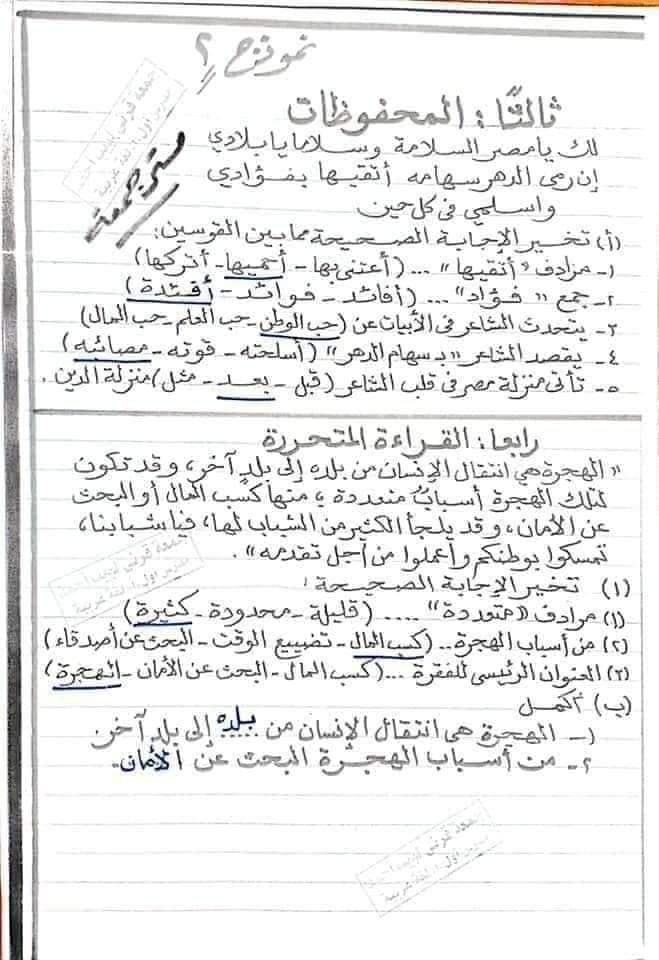 نموذج ٢
جمعه قرني لبيب
مدرس اول ا. لغة عربية
مستر جمعه
ثالثًا: المحفوظات
لك يا مصر السلامة وسلاما يا بلادي
إن رمى الدهر سهامه أتقيها بفؤادي
واسلمي في كل حين
(أ) تخير الإجابة الصحيحة مما بين القوسين:
١- مرادف "أتقيها" ... (أعتني بها - أحميها - أتركها)
٢- جمع "فؤاد" ... (أفائد - فوائد - أفئدة)
٣- يتحدث الشاعر في الأبيات عن (حب الوطن - حب العلم - حب المال)
٤- يقصد الشاعر "بسهام الدهر" (أسلحته - قوته - مصائبه)
٥- تأتي منزلة مصر في قلب الشاعر (قبل - بعد - مثل) منزلة الدين.
رابعا: القراءة المتحررة
"الهجرة هي انتقال الإنسان من بلده إلى بلدٍ آخر، وقد تكون
لتلك الهجرة أسبابٌ متعددة، منها كسب المال أو البحث
عن الأمان، وقد يلجأ الكثير من الشباب لها، فيا شبابنا،
تمسكوا بوطنكم وأعملوا من أجل تقدمه".
جمعه قرني لبيب
مدرس اول ا. لغة عربية
(١) تخير الإجابة الصحيحة:
(١) مرادف "متعددة" .... (قليلة - محدودة - كثيرة)
(٢) من أسباب الهجرة.. (كسب المال - تضييع الوقت - البحث عن أصدقاء)
(٣) العنوان الرئيسي للفقرة ... (كسب المال - البحث عن الأمان - الهجرة)
(ب) أكمل
١- الهجرة هي انتقال الإنسان من بلده إلى بلدٍ آخر
٢- من أسباب الهجرة البحث عن الأمان.
جمعه قرني لبيب
مدرس اول ا. لغة عربية